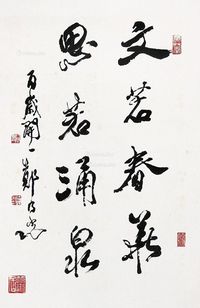 文若春華
思若涌泉
百歲開一鄭乃珖